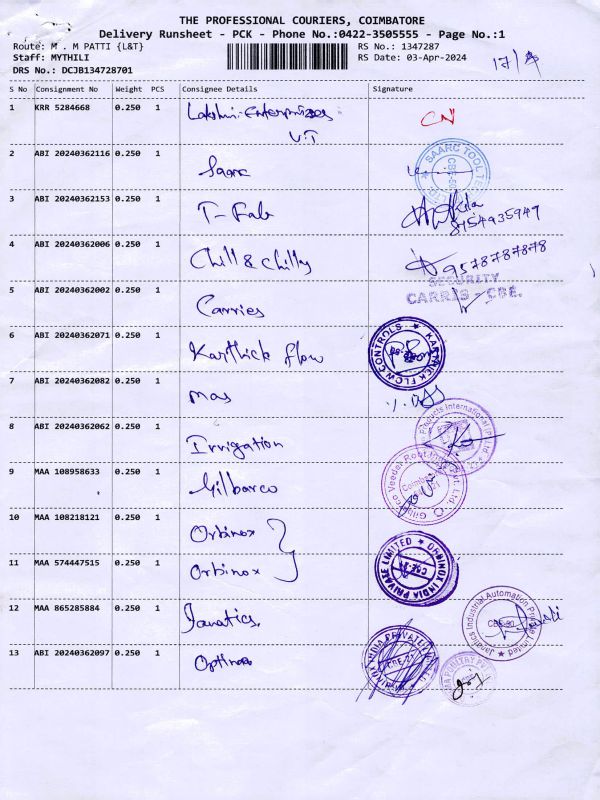 THE PROFESSIONAL COURIERS, COIMBATORE
Delivery Runsheet - PCK - Phone No.:0422-3505555 - Page No.:1
Route: M . M PATTI {L&T} RS No.: 1347287
Staff: MYTHILI RS Date: 03-Apr-2024
DRS No.: DCJB134728701
S No Consignment No Weight PCS Consignee Details Signature
1 KRR 5284668 0.250 1 Lakshmi Enterprises
U.T
2 ABI 20240362116 0.250 1 Saarc SAARC TOOL
3 ABI 20240362153 0.250 1 T-Fab 8754935949
4 ABI 20240362006 0.250 1 Chill & chilly 9578787878
SECURITY
5 ABI 20240362002 0.250 1 Carries CARRIS - CBE.
6 ABI 20240362071 0.250 1 Karthick flow KARTHICK FLOW CONTROLS
7 ABI 20240362082 0.250 1 mas
8 ABI 20240362062 0.250 1 Irrigation Products International (P) Ltd
9 MAA 108958633 0.250 1 Gilbarco Gilbarco Veeder Root India Pvt. Ltd.
10 MAA 108218121 0.250 1 Orbinox
11 MAA 574447515 0.250 1 Orbinox ORBINOX INDIA PRIVATE LIMITED
12 MAA 865285884 0.250 1 Janatics Janatics Industrial Automation Private Limited
CBE-90
13 ABI 20240362097 0.250 1 Optima ORBINOX INDIA PRIVATE